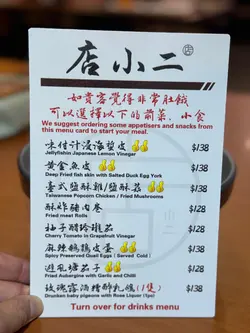 店小二
如貴客覺得非常肚餓
可以選擇以下的前菜，小食
We suggest ordering some appetisers and snacks from
this menu card to start your meal.
味付汁浸海蜇皮 $138
Jellyfishin Japanese Lemon Vinegar
黃金魚皮 $138
Deep Fried fish skin with Salted Duck Egg York
臺式鹽酥雞/鹽酥菇 $138
Taiwanese Popcorn Chicken / Fried Mushrooms
酥炸豬肉卷 $128
Fried meat Rolls
柚子醋玲瓏茄 $128
Cherry Tomato in Grapefruit Vinegar
麻辣鵪鶉皮蛋 $138
Spicy Preserved Quail Eggs ( Served Cold )
避風塘茄子 $128
Fried Aubergine with Garlic and Chili
玫瑰露酒醉乳鴿 (1隻) $138
Drunken baby pigeons with Rose Liquor (1pc)
Turn over for drinks menu